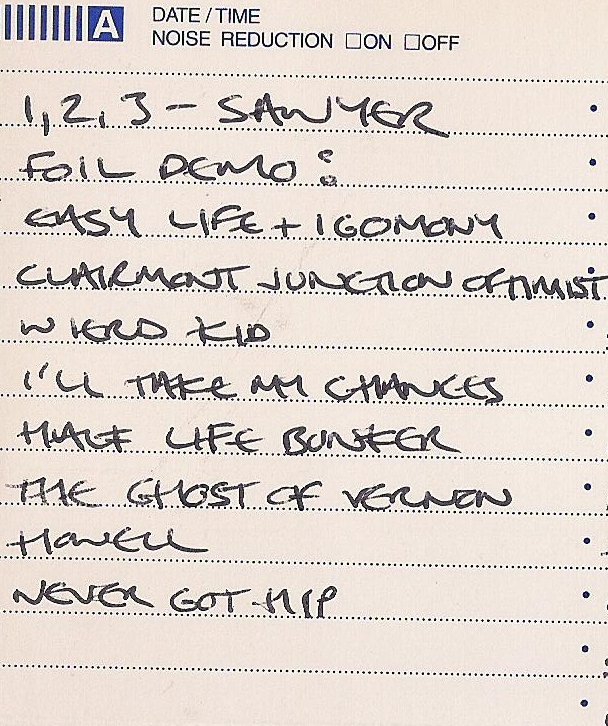 A DATE / TIME
NOISE REDUCTION ☐ON ☐OFF
1, 2, 3 - SAWYER
FOIL DEMO :
EASY LIFE + IGOMONY
CLAIRMONT JUNCTION OPTIMIST
WIERD KID
I'LL TAKE MY CHANCES
HALF LIFE BUNKER
THE GHOST OF VERNON
HOWELL
NEVER GOT HIP